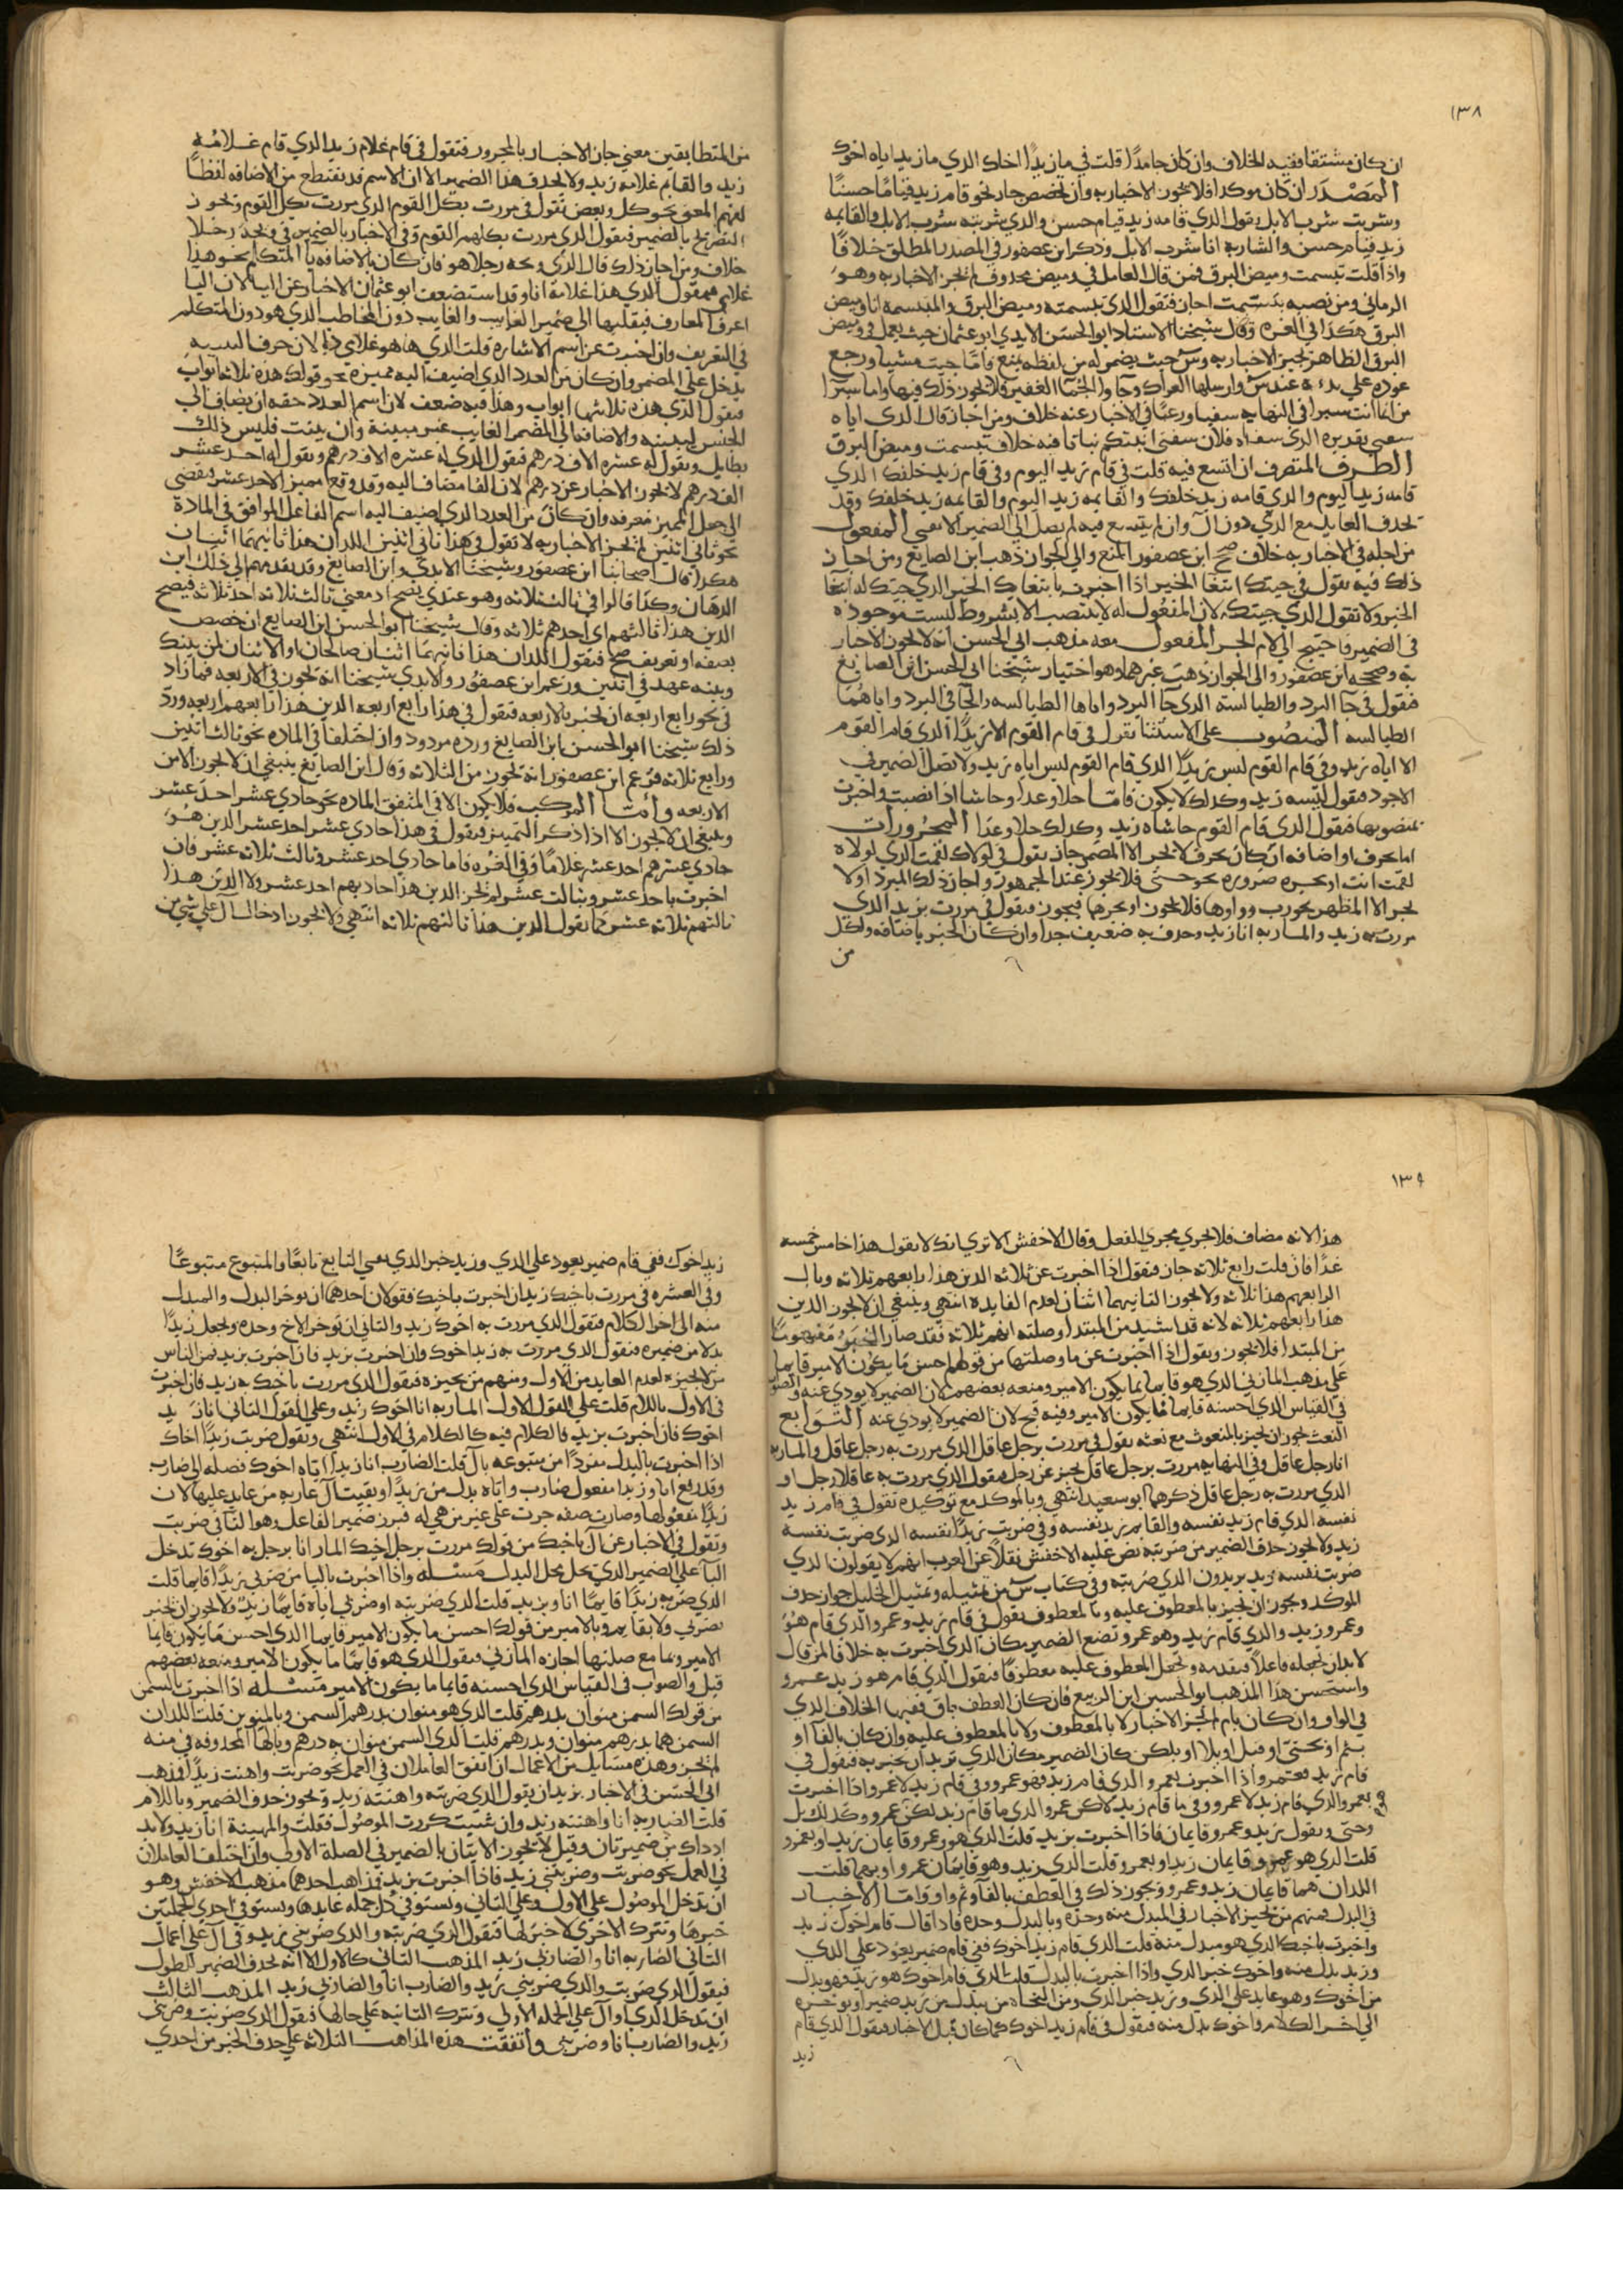 ١٣٨
ان كان مشتقا ففيه الخلاف وان كان جامدا قلت في ما زيد الا اخاك الذي ما زيد اياه اخوك
المصدر ان كان موكدا فلا يجوز الاخبار به وان تخصص جاز نحو قام زيد قياما حسنا
وشربت شرب الابل تقول الذي قامه زيد قيام حسن والذي شربته شرب الابل والقايمه
زيد قيام حسن والشاربه انا شرب الابل وذكر ابن عصفور في المصدر المطلق خلافا
واذا قلت تبسمت وميض البرق فمن قال العامل في وميض محذوف لم يجز الاخبار به وهو
الرماني ومن نصبه بتبسمت اجاز فتقول الذي تبسمته وميض البرق والمتبسمه انا وميض
البرق هكذا في الغره وقال شيخنا الاستاد ابو الحسن الابدي ابو عثمان حيث يعمل في وميض
البرق الظاهر يجيز الاخبار به وس حيث يضمر له من لفظه يمنع فاما جيت مشيا ورجع
عوده على بدءه عند س وارسلها العراك وجاوا الجما الغفير فلا يجوز ذلك فيها واما سيرا
من انما انت سيرا في النهايه سقيا ورعيا في الاخبار عنه خلاف ومن اجاز قال الذي اياه
الظرف المتصرف ان اتسع فيه قلت في قام زيد اليوم وفي قام زيد خلفك الذي
قامه زيد اليوم والذي قامه زيد خلفك والقايمه زيد اليوم والقايمه زيد خلفك وقد
يحذف العايد مع الذي دون ال وان لم يتسع فيه لم يصل الى الضمير الا بفي المفعول
من اجله في الاخبار به خلاف صحح ابن عصفور المنع والى الجواز ذهب ابن الصايغ ومن اجاز
ذلك فيه تقول في جيتك ابتغا الخير اذا اخبرت بابتغاء الخير الذي جيتك له ابتغا
الخير ولا تقول الذي جيتكه لان المفعول له لا ينتصب الا بشروط ليست موجوده
في الضمير فاحتيج الى لام الجر المفعول معه مذهب ابي الحسن انه لا يجوز الاخبار
به وصححه ابن عصفور والى الجواز ذهب غيرهما وهو اختيار شيخنا ابي الحسن ابن الصايغ
فتقول في جا البرد والطيالسة الذي جا البرد واياها الطيالسه والجاي البرد واياها
الطيالسه المنصوب على الاستثنا تقول في قام القوم الا زيدا الذي قام القوم
الا اياه زيد وفي قام القوم ليس زيدا الذي قام القوم ليس اياه زيد ولا تصل الضمير في
الاجود فتقول ليسه زيد وكذلك لا يكون فاما خلا وعدا وحاشا اذا نصبت واخبرت
بمنصوبها فتقول الذي قام القوم حاشاه زيد وكذلك خلا وعدا المجرورات
اما بحرف او اضافه ان كان بحرف لا يجر الا المضمر جاز تقول في لولاك لقمت الذي لولاه
لقمت انت او بجره ضروره نحو حتى فلا يجوز عند الجمهور واجاز ذلك المبرد اولا
يجر الا المظهر نحو رب وواوها فلا يجوز او يجرهما فيجوز فتقول في مررت بزيد الذي
مررت به زيد والمار به انا زيد وحذف به ضعيف جدا وان كان الخبر باضافه ولكل
من
من المتطابقين معنى جاز الاخبار بالمجرور فتقول في قام غلام زيد الذي قام غلامه
زيد والقايم غلامه زيد ولا يحذف هذا الضمير الا ان الاسم قد يقتطع من الاضافه لفظا
لفهم المعنى نحو كل وبعض تقول في مررت بكل القوم الذي مررت بكل القوم ويجوز
التصريح بالضمير فتقول الذي مررت بكلهم القوم وفي الاخبار بالضمير في ويحه رجلا
خلاف ومن اجاز ذلك قال الذي ويحه رجلا هو فان كان بالاضافه يا المتكلم نحو هذا
غلامي فتقول الذي هذا غلامه انا وقد استضعف ابو عثمان الاخبار عن اليا لان اليا
اعرف المعارف فيقلبها الى ضمير الغايب والغايب دون المخاطب الذي هو دون المتكلم
في التعريف وان اخبرت عن اسم الاشاره قلت الذي ها هو غلامي ذا لان حرف التنبيه
يدخل على المضمر وان كان من العدد الذي اضيف اليه مميزه نحو قولك هذه ثلاثة ابواب
فتقول الذي هذه ثلاثتها ابواب وهذا فيه ضعف لان اسم العدد حقه ان يضاف الى
الجنس لتبينه والاضافه الى المضمر الغايب غير مبينة وان بينت فليس ذلك
بطايل وتقول له عشره الاف درهم فتقول الذي له عشره الافه درهم وتقول له احد عشر
الف درهم لا يجوز الاخبار عن درهم لان الفا مضاف اليه وقد وقع مميز الاحد عشر فيفضي
الى جعل المميز معرفه وان كان من العدد الذي اضيف اليه اسم الفاعل الموافق في المادة
نحو ثاني اثنين لم يجز الاخبار به لا تقول في هذا ثاني اثنين اللذان هذا ثانيهما اثنان
هكذا قال اصحابنا ابن عصفور وشيخنا الابدي وابن الصايغ وقد تقدمهم الى ذلك ابن
الدهان وكذا قالوا في ثالث ثلاثه وهو عندي يصح اذ معنى ثالث ثلاثه احد ثلاثه فيصح
الذين هذا ثالثهم اي احدهم ثلاثه وقال شيخنا ابو الحسن ابن الصايغ ان خصص
بصفه او تعريف صح فتقول اللذان هذا ثانيهما اثنان صالحان او الاثنان لمن بينك
وبينه عهد في اثنين وزعم ابن عصفور والابدي شيخنا انه يجوز في الاربعه فما زاد
في نحو رابع اربعه ان يخبر بالاربعه فتقول في هذا رابع اربعه الذين هذا رابعهم اربعه ورد
ذلك شيخنا ابو الحسن ابن الصايغ ورده مردود وان اختلفا في الماده نحو ثالث اثنين
ورابع ثلاثه فزعم ابن عصفور انه يجوز من الثلاثه وقال ابن الصايغ ينبغي ان لا يجوز الا من
الاربعه وأمّا المركب فلا يكون الا في المتفق الماده نحو حادي عشر احد عشر
وينبغي ان لا يجوز الا اذا ذكر التمييز فتقول في هذا حادي عشر احد عشر الذين هو
حادي عشرهم احد عشر غلاما وفي الغره فاما حادي احد عشر وثالث ثلاثه عشر فان
اخبرت باحد عشر وثالث عشر لم يجز الذين هذا حاديهم احد عشر ولا الذين هذا
ثالثهم ثلاثه عشر كما تقول الذين هذا ثالثهم ثلاثه انتهى ولا يجوز ادخال ال على شي من
١٣٩
هذا لانه مضاف فلا يجري مجرى الفعل وقال الاخفش الا ترى انك لا تقول هذا خامس خمسه
غدا فان قلت رابع ثلاثه جاز فتقول اذا اخبرت عن ثلاثه الذين هذا رابعهم ثلاثه وبال
الرابعهم هذا ثلاثه ولا يجوز الثانيهما اثنان لعدم الفايده انتهى وينبغي ان لا يجوز الذين
هذا رابعهم ثلاثه لانه قد استفيد من المبتدا وصلته انهم ثلاثه فقد صار الخبر مفهوما
من المبتدا فلا يجوز وتقول اذا اخبرت عن ما وصلتها من قولهم احسن ما يكون الامير قايما
على مذهب المازني الذي هو قايما ما يكون الامير ومنعه بعضهم لان الضمير لا يودي عنه والصواب
في القياس الذي احسنه قايما ما يكون الامير وفيه قبح لان الضمير لا يودي عنه التوابع
النعت يجوز ان يخبر بالمنعوت مع نعته تقول في مررت برجل عاقل الذي مررت به رجل عاقل والمار به
انا رجل عاقل وفي النهايه مررت برجل عاقل يخبر عن رجل فتقول الذي مررت به عاقلا رجل او
الذي مررت به رجل عاقل ذكرهما ابو سعيد انتهى وبالموكد مع توكيده تقول في قام زيد
نفسه الذي قام زيد نفسه والقايم زيد نفسه وفي ضربت زيدا نفسه الذي ضربت نفسه
زيد ولا يجوز حذف الضمير من ضربته نص عليه الاخفش نقلا عن العرب انهم لا يقولون الذي
ضربت نفسه زيد يريدون الذي ضربته وفي كتاب س من تمثيله وتمثيل الخليل جواز حذف
الموكد ويجوز ان يخبر بالمعطوف عليه وبالمعطوف تقول في قام زيد وعمرو الذي قام هو
وعمرو زيد والذي قام زيد وهو عمرو تضع الضمير مكان الذي اخبرت به خلافا لمن قال
لا بد ان تجعله فاعلا فتقدمه وتجعل المعطوف عليه معطوفا فتقول الذي قام هو زيد عمرو
واستحسن هذا المذهب ابو الحسين ابن الربيع فان كان العطف بباقي ففيها الخلاف الذي
في الواو وان كان بام لم يجز الاخبار لا بالمعطوف ولا بالمعطوف عليه وان كان بالفا او
بثم او بحتى او ببل او بلا او بلكن كان الضمير مكان الذي تريد ان يخبر به فتقول في
قام زيد فعمرو اذا اخبرت بعمرو الذي قام زيد فهو عمرو وفي قام زيد لا عمرو اذا اخبرت
بعمرو الذي قام زيد لا عمرو وفي ما قام زيد لكن عمرو الذي ما قام زيد لكن عمرو وكذلك بل
وحتى وتقول زيد وعمرو قايمان فاذا اخبرت بزيد قلت الذي هو وعمرو قايمان زيد او بعمرو
قلت الذي هو وعمرو قايمان زيد او بعمرو قلت الذي زيد وهو قايمان عمرو او بهما قلت
اللذان هما قايمان زيد وعمرو ويجوز ذلك في العطف بالفا وثم واو وامّا الاخبار
في البدل فمنهم من يجيز الاخبار في المبدل منه وحده وبالبدل وحده فاذا قال قام اخوك زيد
واخبرت باخيك الذي هو مبدل منه قلت الذي قام زيد اخوك ففي قام ضمير يعود على الذي
وزيد بدل منه واخوك خبر الذي واذا اخبرت بالبدل قلت الذي قام اخوك هو زيد فهو بدل
من اخوك وهو عايد على الذي وزيد خبر الذي ومن النحاه من يبدل من زيد ضميرا ويوخره
الى اخر الكلام واخوك بدل منه فتقول في قام زيد اخوك كما كان قبل الاخبار فتقول الذي قام
زيد
زيد اخوك ففي قام ضمير يعود على الذي وزيد خبر الذي يبقي التابع تابعا والمتبوع متبوعا
وفي العشره في مررت باخيك زيد ان اخبرت باخيك فقولان احدهما ان توخر البدل والمبدل
منه الى اخر الكلام فتقول الذي مررت به اخوك زيد والثاني ان توخر الاخ وحده وتجعل زيدا
بدلا من ضميره فتقول الذي مررت به زيد اخوك وان اخبرت بزيد فان اخبرت بزيد فمن الناس
من لا يجيزه لعدم العايد من الاول ومنهم من يجيزه فيقول الذي مررت باخيك به زيد فان اخبرت
في الاول باللام قلت على القول الاول المار به انا اخوك زيد وعلى القول الثاني
اخوك فان اخبرت بزيد فالكلام فيه كالكلام في الاول انتهى وتقول ضربت زيدا اخاك
اذا اخبرت بالبدل مفردا من متبوعه بال قلت الضارب انا زيدا اياه اخوك فصله الى ضارب
وقد رفع انا وزيدا مفعول ضارب واياه بدل من زيدا وبقيت ال عاريه من عايد عليها لان
زيدا مفعولها وصارت صفه جرت على غير من هي له فبرز ضمير الفاعل وهو التا في ضربت
وتقول في الاخبار عن ال باخيك من قولك مررت برجل اخيك المار انا برجل به اخوك تدخل
البا على الضمير الذي يحل محل البدل مسئله واذا اخبرت باليا من ضربي زيدا قايما قلت
الذي ضربه زيدا قايما انا وبزيد قلت الذي ضربته او ضربي اياه قايما زيد ولا يجوز ان يخبر
بضربي ولا بقايم وبالامير من قولك احسن ما يكون الامير قايما الذي احسن ما يكون قايما
الامير وبما مع صلتها اجازه المازني فتقول الذي هو قايما ما يكون الامير ومنعه بعضهم
قيل والصواب في القياس الذي احسنه قايما ما يكون الامير مسئله اذا اخبرت بالسمن
من قولك السمن منوان بدرهم قلت الذي هو منوان بدرهم السمن وبالمنوين قلت اللذان
السمن هما بدرهم منوان وبدرهم قلت الذي السمن منوان به درهم وبالها المحذوفه في منه
لم يجز وهذه مسايل من الاعمال ان اتفق العاملان في العمل نحو ضربت واهنت زيدا فذهب
ابي الحسن في الاخبار بزيد ان يقول الذي ضربته واهنته زيد ويجوز حذف الضمير وباللام
قلت الضاربه انا واهنته زيد وان شيت كررت الموصول فقلت والمهينه انا زيد ولا بد
اذ ذاك من ضميرين وقيل لا يجوز الاتيان بالضمير في الصلة الاولى وان اختلف العاملان
في العمل نحو ضربت وضربني زيد فاذا اخبرت بزيد فمذاهب احدها مذهب الاخفش وهو
ان تدخل الموصول على الاول وعلى الثاني وتستوفي كل جمله عايدها وتستوفي احدى الجملتين
خبرها وتترك الاخرى لا خبر لها فتقول الذي ضربته والذي ضربني زيد وفي ال على اعمال
الثاني الضاربه انا والضاربي زيد المذهب الثاني كالاول الا انه يحذف الضمير للطول
فيقول الذي ضربت والذي ضربني زيد والضارب انا والضاربي زيد المذهب الثالث
ان تدخل الذي او ال على الجمله الاولى وتترك الثانيه على حالها فتقول الذي ضربت وضربني
زيد والضارب انا وضربني واتفقت هذه المذاهب الثلاثه على حذف الخبر من احدى